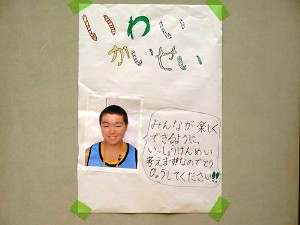 いわい
かいせい
みんなが楽しく
できるように、
いっしょうけんめい
考えますなのでとう
ひょうしてください!!